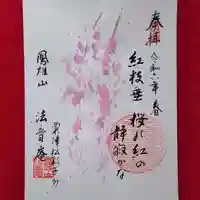 奉拝
令和六年 春
紅枝垂
桜れ紅の
静寂かな
鳳雄山
法音庵